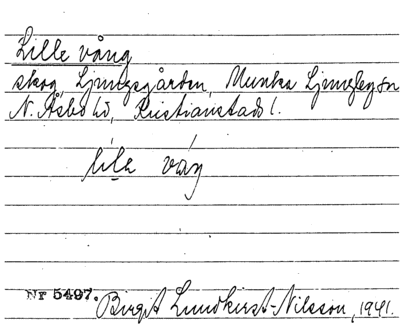 Lille vång
skog, Ljungsgården, Munka Ljungby sn
N. Åsbo hd, Kristianstads l.
lı́lə våŋ
Nr 5497. Birgit Lundkvist-Nilsson, 1941.